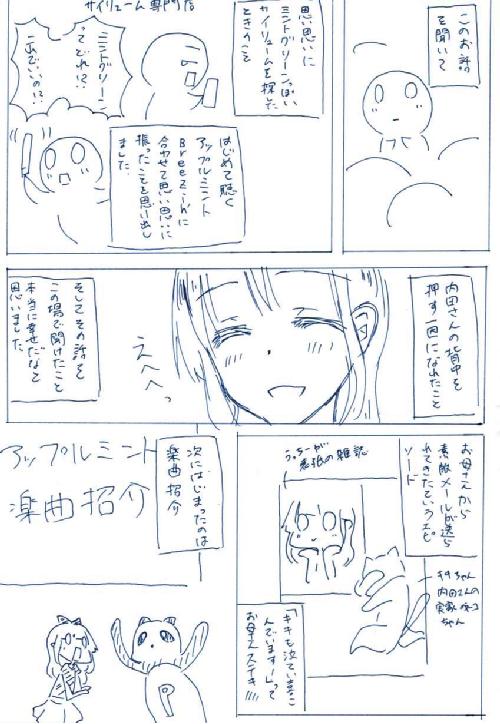 このお話
を聞いて
思い思いに
ミントグリーンっぽい
サイリュームを探した
ときのこと
サイリューム専門店
ミントグリーン
ってどれ!?
こあでいいの!?
はじめて聴く
アップルミント
Breezinに
合わせて思い思いに
振ったことを思い出し
ました
内田さんの背中を
押す一因になれたこと
えへへっ
そしてその話を
この場で聞けたこと
本当に幸せだなと
思いました
お母さんから
素敵メールが送ら
れてきたていうエピ
ソード
うっちーが
表紙の雑誌
キキちゃん
内田さんの
実家のネコ
ちゃん
「キキも泣いてよろこ
んでいますー」って
お母さんステキ!!!!
次にはじまったのは
楽曲紹介
アップルミント
楽曲招介
P